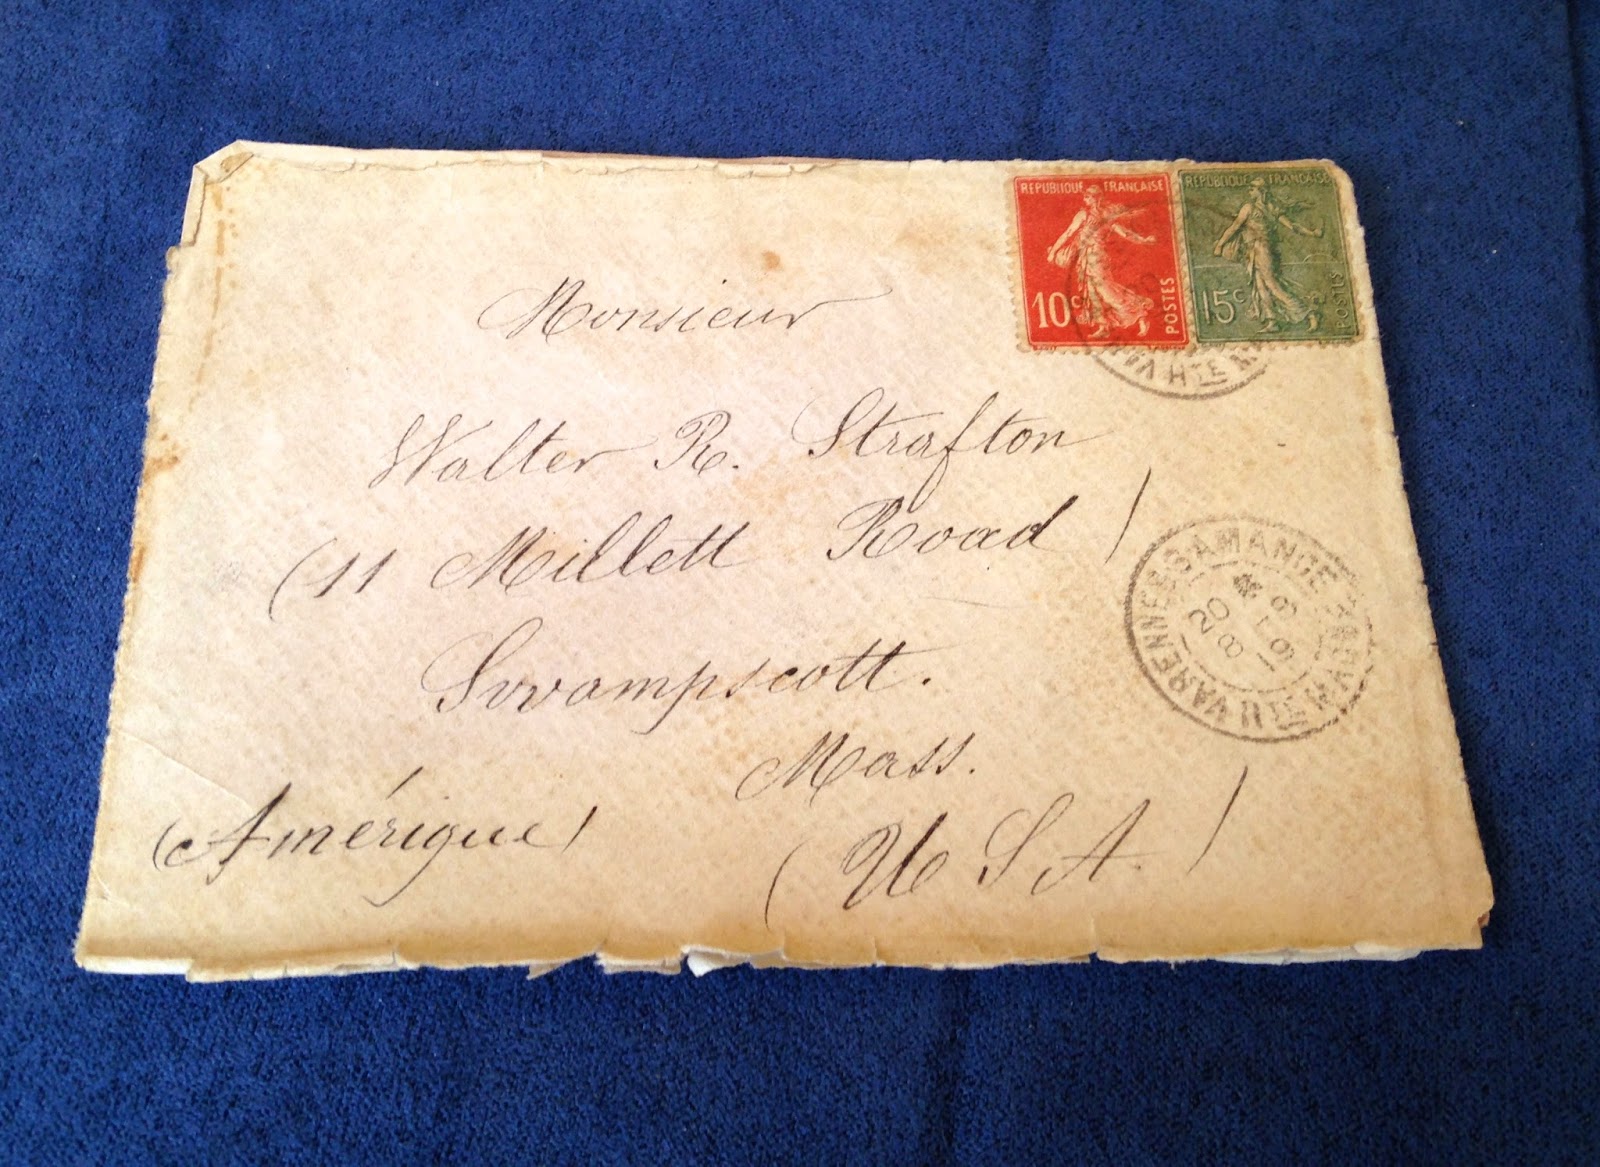 REPUBLIQUE FRANCAISE
10c
POSTES
REPUBLIQUE FRANCAISE
15c
POSTES
HTE
Monsieur
Walter R. Strafton
(11 Millett Road)
Swampscott.
Mass.
(Amérique) (U S A)
VARENNES AMANCE
HTE MARNE
20
8